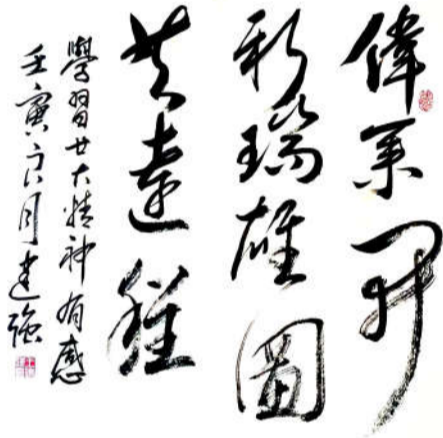 偉業開
新瑞雄圖
共遠
學習廿大精神有感
壬寅亥月建強